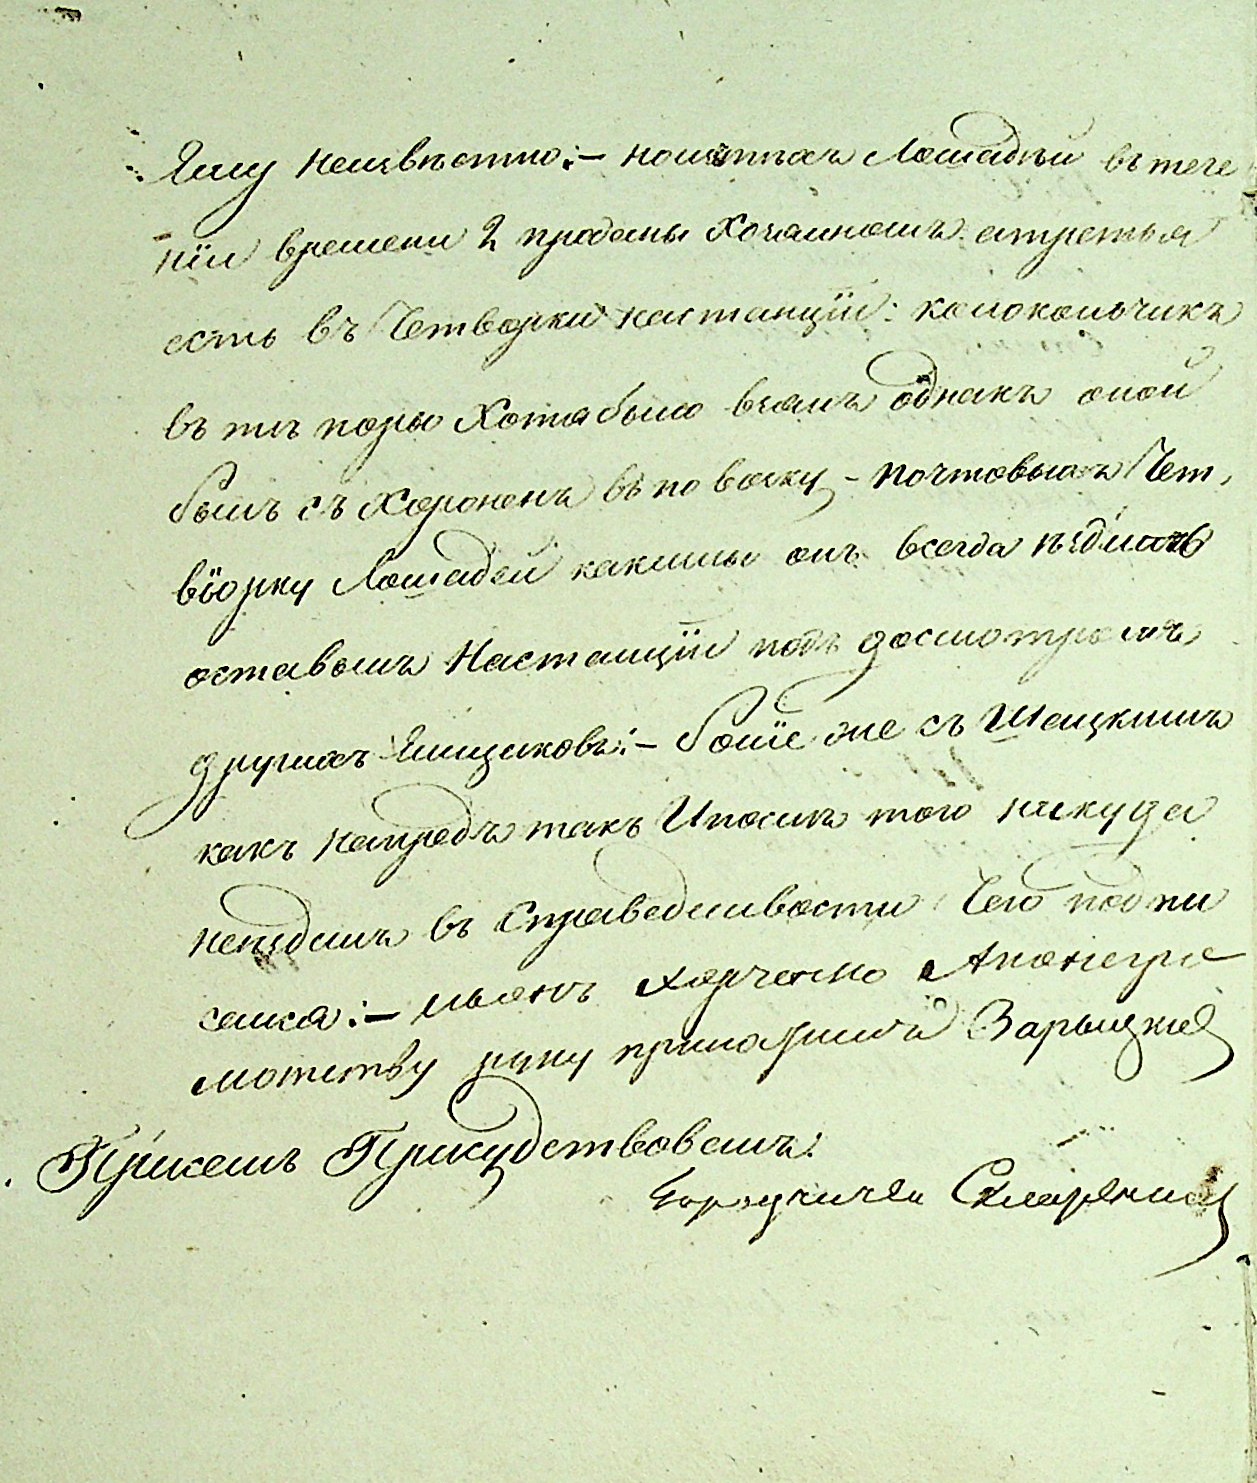 Ему неизвѣстно:– но изтѣхъ лошадей въ тече
нїи времени 2 проданы хозаиномъ атретья
есть въ Четворки настанцїи: колоколчикъ
въ тѣ поры Хотя былъ внамъ однакъ оной
былъ съ хороненъ въ повоску – почтовыхъ Чет,
вїорку лошадей какимы онъ всегда ѣздилъ
оставылъ Настанцїи подъ досмотромъ
другихъ Ямщиковъ:– болїе же съ Шацкимъ
какъ напредъ такъ Ипослѣ того никуда
неездилъ въ Справедливости Чего подпи
сался:– Иванъ Харченко Анонегра
мотству руку приложилъ Зарыцкий
При семъ Присудствовалъ:
Городничей